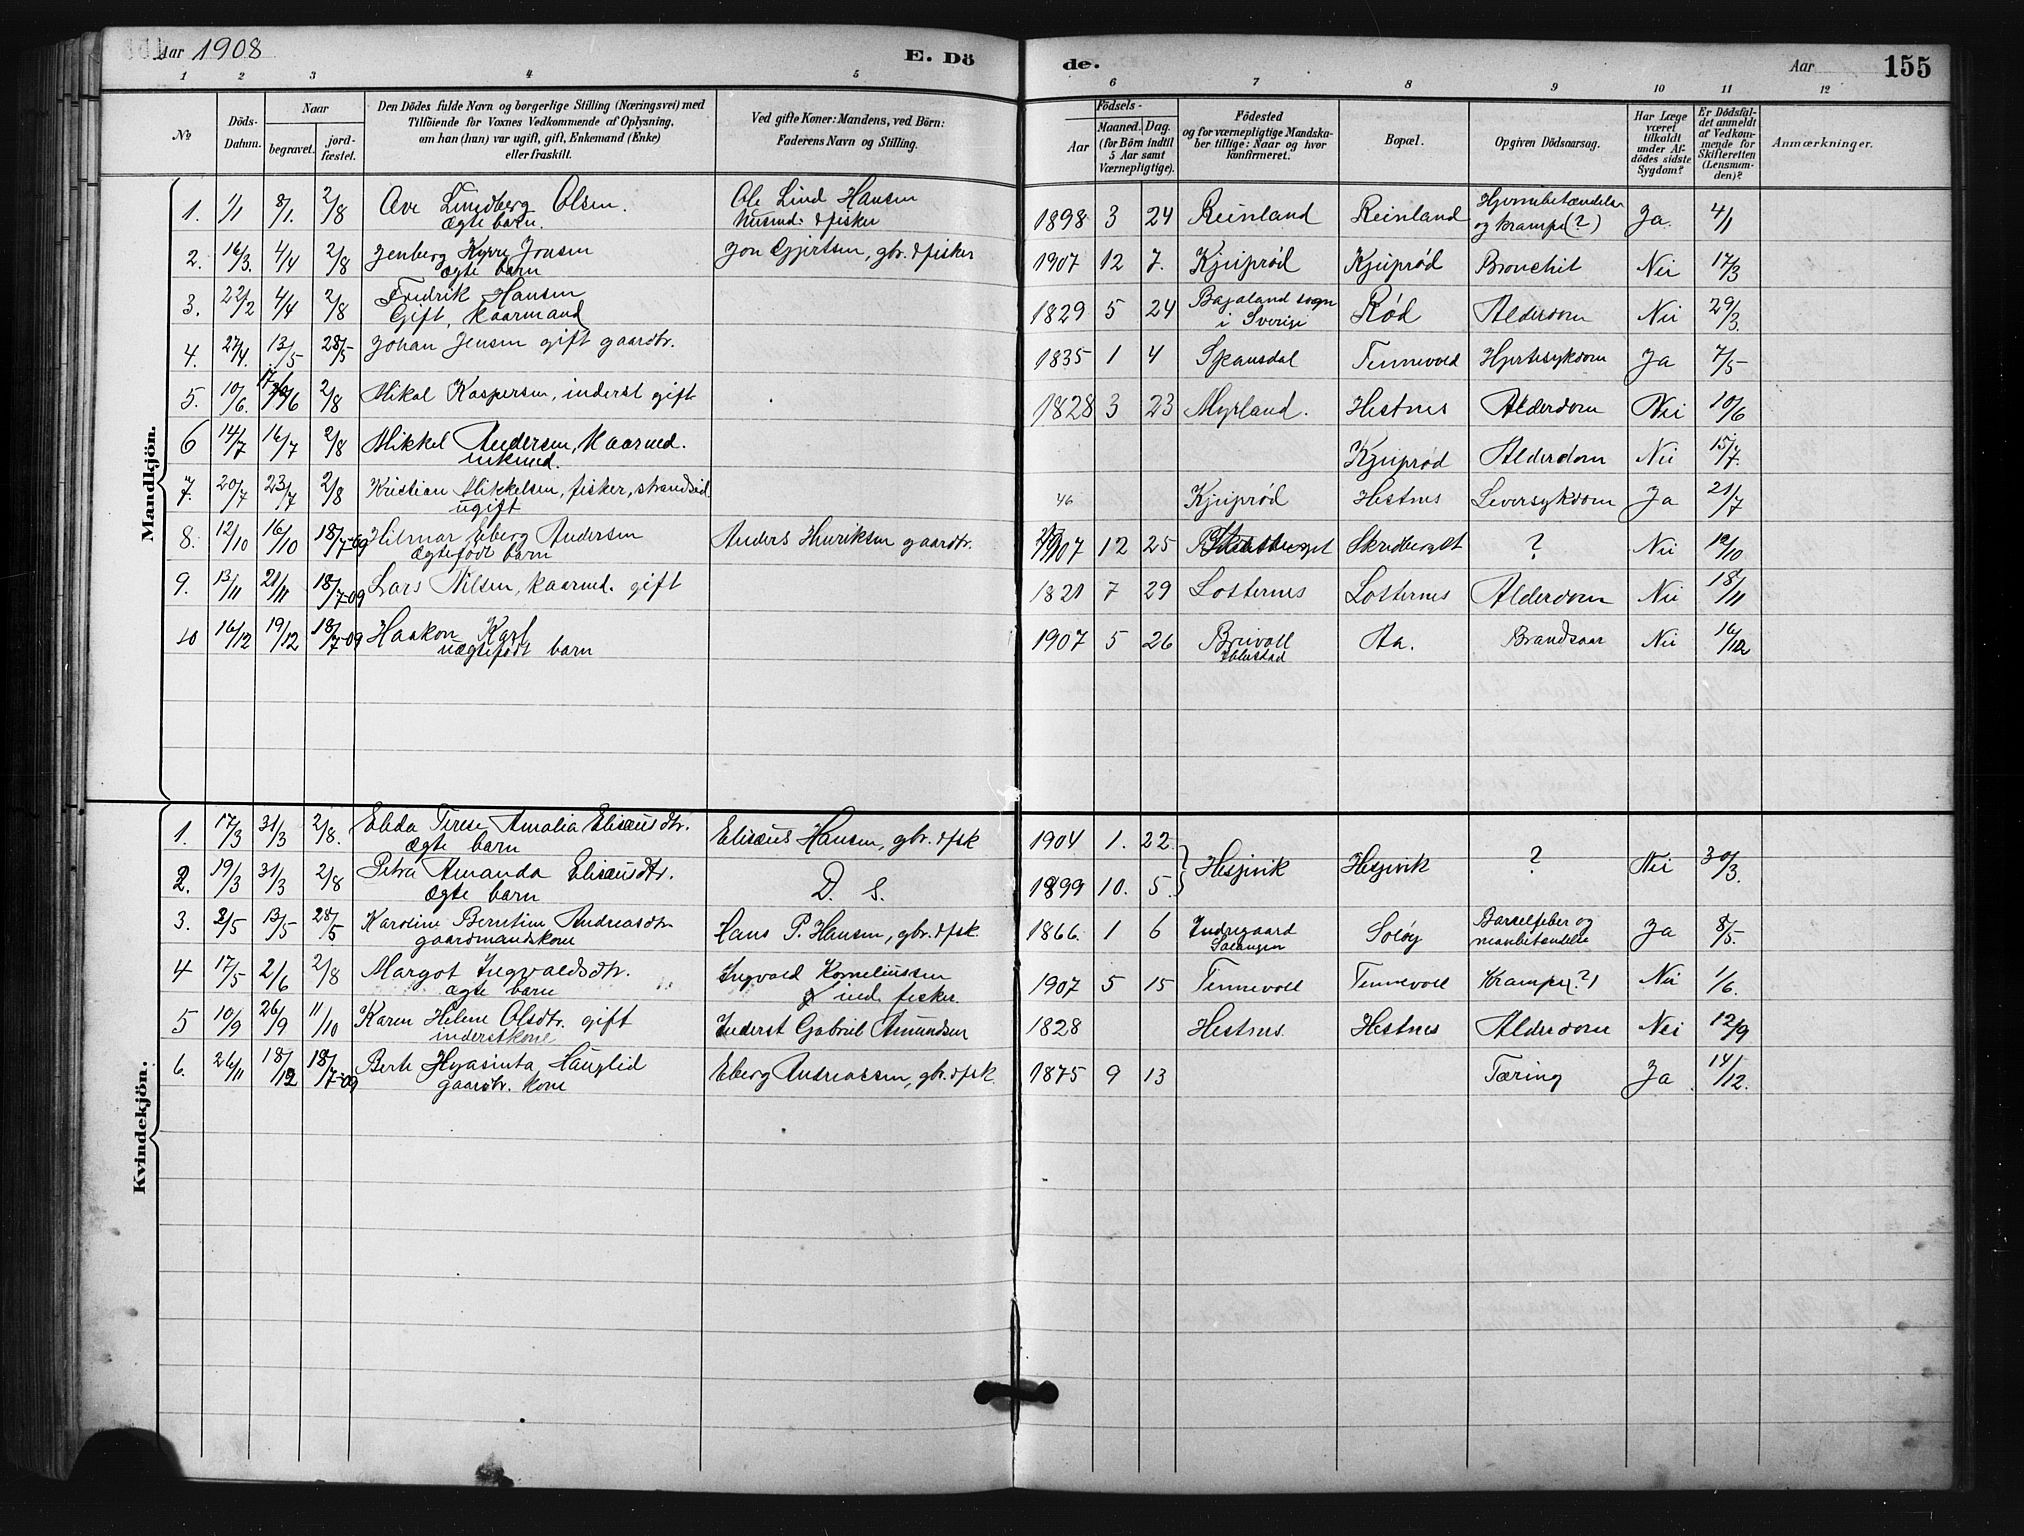 Aar 1908 E. Dö de. Aar 155
1 2 3 4 5 6 7 8 9 10 11 12
No
Döds-Datum.
Naar
begravet.
jord-fæstet.
Den Dödes fulde Navn og borgerlige Stilling (Næringsvei) med
Tilföiende for Voxnes Vedkommende af Oplysning,
om han (hun) var ugift, gift, Enkemand (Enke)
eller fraskilt.
Ved gifte Koner: Mandens, ved Börn:
Faderens Navn og Stilling.
Födsels-
Aar
Maaned. Dag.
(for Börn indtil
5 Aar samt
Værnepligtige).
Födested
og for værnepligtige Mandska-
ber tillige: Naar og hvor
konfirmeret.
Bopæl.
Opgiven Dödsaarsag.
Har Læge
været
tilkaldt
under Af-
dödes sidste
Sygdom?
Er Dödsfal-
det anmeldt
af Vedkom-
mende for
Skifteretten
(Lensman-
den)?
Anmærkninger.
Mandkjön.
1. 1/1 8/1. 2/8 Ove Lindberg Olsen. Ole Lind Hansen 1898 3 24 Reinland Reinland Hjernebetændelse Ja. 4/1
ægte barn. husmd. & fisker og krampe (?)
2. 16/3. 4/4 2/8 Jenberg Kyrre Jonsen Jon Gjertsen, gbr. & fisker 1907 12 7. Kjuprød Kjuprød Bronchit Nei 17/3
ægte barn
3. 22/2 4/4 2/8 Fredrik Hansen 1829 5 24 sogn Rød Alderdom Nei 29/3.
Gift, kaarmand i Sverige
4. 27/4. 13/5 28/5 Johan Jensen gift gaardbr. 1835 1 4 Spansdal Tennevold Hjertesykdom Ja 7/5
5. 10/6. 17/6 2/8 Mikal Kaspersen, inderst gift 1828 3 23 Myrland. Hestnes Alderdom Nei 10/6
6 14/7 16/7 2/8 Mikkel Andersen, kaarmd. Kjuprød Alderdom Nei 15/7.
enkemd.
7. 20/7 23/7 2/8 Kristian Mikkelsen, fisker, strandsid 46 Kjuprød Hestnes Leversykdom Ja 21/7
ugift
8. 12/10 16/10 18/7-09 Hilmar Eberg Andersen Anders Henriksen gaardbr. 1907 12 25 Skredberget ? Nei 12/10
ægtefødt barn
9. 13/11 21/11 18/7-09 Lars Nilsen, kaarmd. gift 1821 7 29 Lotternes Lotternes Alderdom Nei 18/11
10 16/12 19/12 18/7-09 Haakon Karl 1907 5 26 Breivoll Aa. Brandsaar Nei 16/12
uægtefødt barn Ibbestad
Kvindekjön.
1. 17/3 31/3 2/8. Elida Terese Amalia Elisæusdtr. Elisæus Hansen, gbr. & fsk 1904 1. 22.
ægte barn
2. 19/3 31/3 2/8 Petra Amanda Elisæusdtr. D. S. 1899 10. 5. Hesjevik Hesjevik ? Nei 30/3.
ægte barn
3. 2/5 13/5 28/5 Karoline Berntine Andreasdtr Hans P. Hansen, gbr. & fsk. 1866. 1 6 Indregaard Soløy Barselfeber og Ja 8/5.
gaardmandskone Salangen
4 17/5 2/6 2/8 Margot Ingvaldsdtr. Ingvald Korneliussen 1907 5 15 Tennevoll Tennevoll Krampe(?) Nei 1/6.
ægte barn ind. fisker
5 10/9 26/9 11/10 Karen Helene Olsdtr. gift Inderst Gabriel Amundsen 1828 Hestnes. Hestnes Alderdom Nei 12/9
inderstkone
6. 26/11 18/12 18/7-09 Berte Hyasinta Hauglid Eberg Andreassen, gbr. & fsk. 1875 9 13 Tæring Ja 14/12.
gaardbr. kone